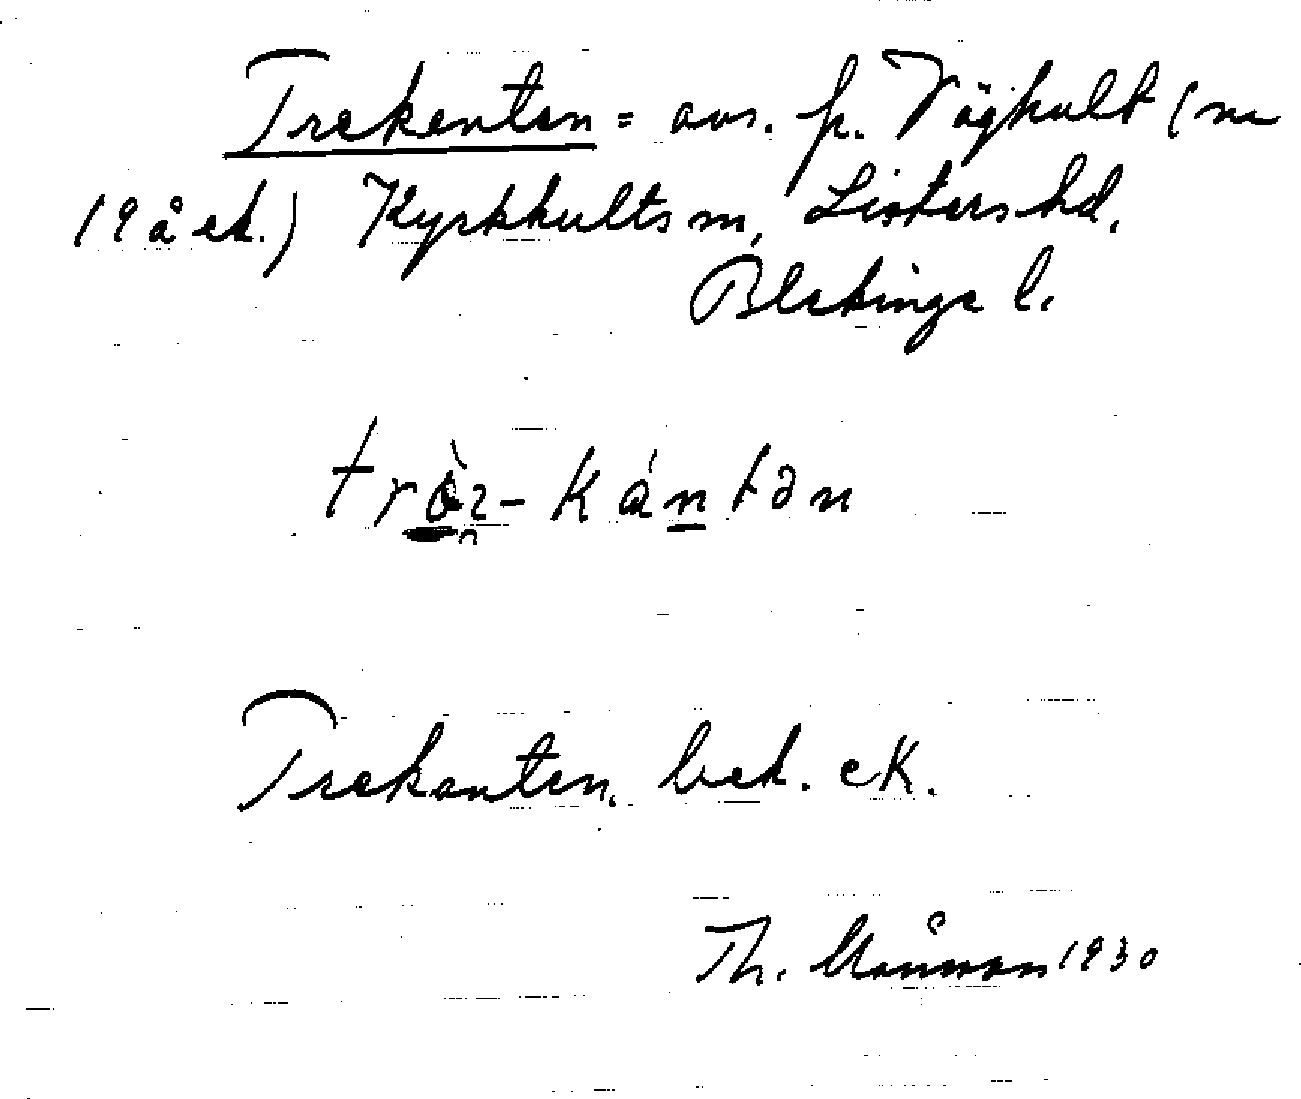 Trekanten = avs. p. Väghult (nr
19 å ek.) Kyrkhults sn, Listers hd.
Blekinge l.
trò̱ı̯-kán̠tən
Trekanten. bek. eK.
Th. Månson 1930